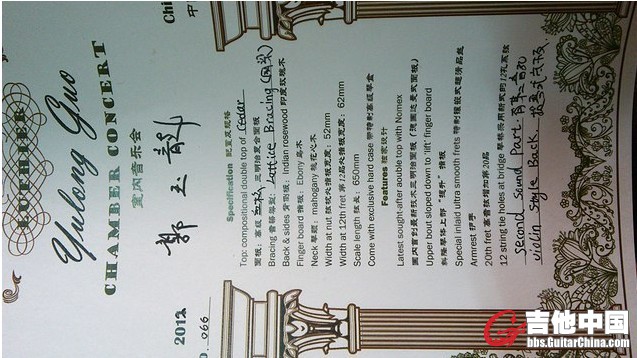 LUTHIER
Yulong Guo
CHAMBER CONCERT
室内音乐会
郭玉龍
Specification 配置及规格
Top: compositional double top of Cedar
Bracing 音替:Lattice Bracing
Back & sides 背侧板: Indian rosewood 印度玫瑰木
Finger board 指板: Ebony 乌木
Neck 琴颈: mahogany 桃花心木
Width at nut 弦枕处指板宽度: 52mm
Width at 12th fret 第12品处指板宽度: 62mm
Scale length 弦长: 650mm
Come with exclusive hard case 带特制高级琴盒
Features 独家设计
Latest sought-after double top with Nomex
Upper bout sloped down to 'lift' finger board
斜降琴体上部 "提升" 指板
Special inlaid ultra smooth frets
Armrest 护手
20th fret 高音弦增加第20品
12 string tie holes at bridge
Second Sound Part
Violin Style Back
2012
066
Chi
中
吉他中国
bbs.GuitarChina.com